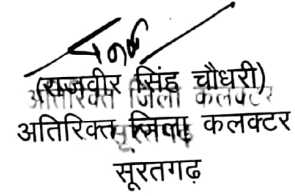 (राजवीर सिंह चौधरी)
अतिरिक्त जिला कलक्टर
अतिरिक्त जिला कलक्टर
सूरतगढ़